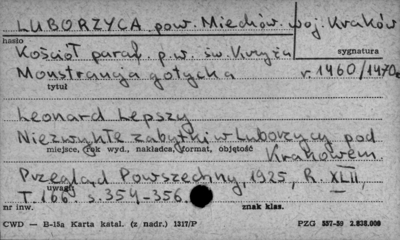 LUBORZYCA pow. Miechów. woj. Kraków
hasło
Kościół paraf. p.w. św. Krzyża
sygnatura
Monstrancja gotycka r. 1460/1470
tytuł
Leonard Lepszy
Niezwykłe zabytki w Luborzycy pod
miejsce, rok wyd., nakładca, format, objętość
Krakowem.
Przegląd Powszechny, 1925, R. XLII,
uwagi
T. 166. s. 354-356.
nr inw. znak klas.
CWD — B-15a Karta katal. (z nadr.) 1317/P PZG 557-50 2.838.000